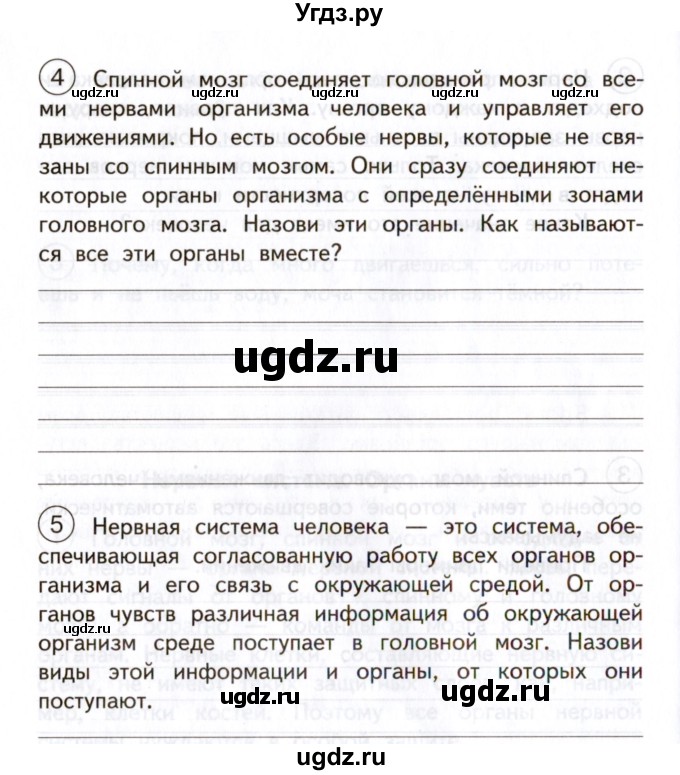 Угдз.ру
4 Спинной мозг соединяет головной мозг со все-
ми нервами организма человека и управляет его
движениями. Но есть особые нервы, которые не свя-
заны со спинным мозгом. Они сразу соединяют не-
которые органы организма с определёнными зонами
головного мозга. Назови эти органы. Как называют-
ся все эти органы вместе?
ugdz.ru
5 Нервная система человека — это система, обе-
спечивающая согласованную работу всех органов ор-
ганизма и его связь с окружающей средой. От ор-
ганов чувств различная информация об окружающей
организм среде поступает в головной мозг. Назови
виды этой информации и органы, от которых они
поступают.
ugdz.ru